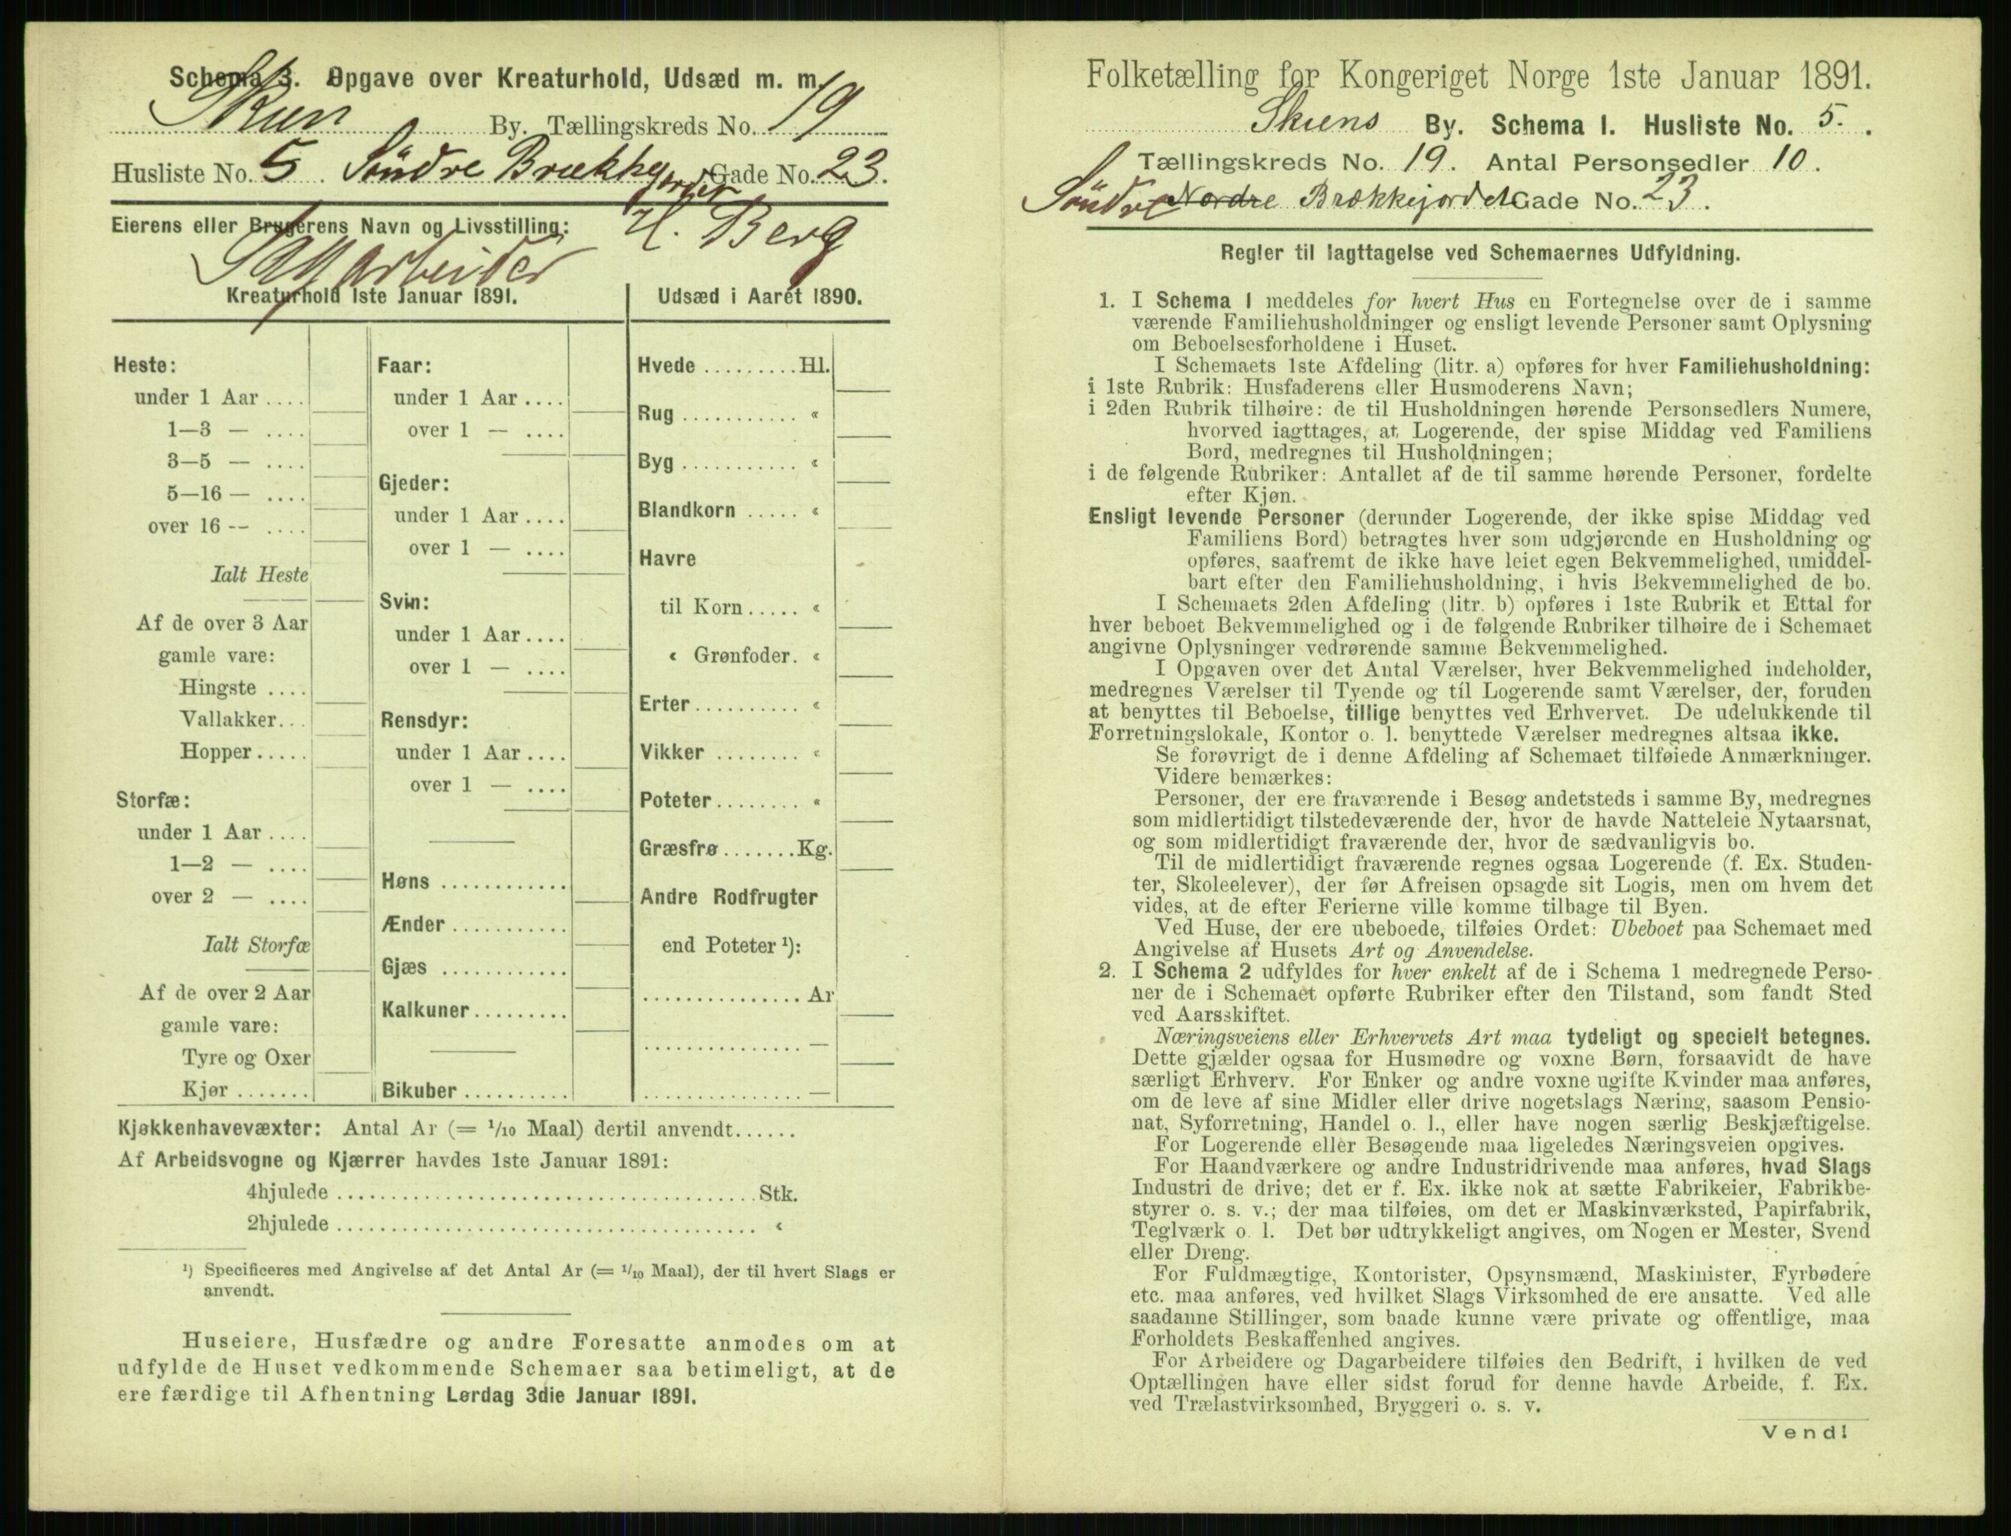 Schema 3. Opgave over Kreaturhold, Udsæd m. m.
Skien By. Tællingskreds No. 19
Husliste No. 5. Søndre Brækkejordet Gade No. 23.
Eierens eller Brugerens Navn og Livsstilling: H. Berg
Sagarbeider
Kreaturhold 1ste Januar 1891.
Heste:
under 1 Aar ....
1—3 — ....
3—5 — ....
5—16 — ....
over 16 — ....
Ialt Heste
Af de over 3 Aar
gamle vare:
Hingste ....
Vallakker...
Hopper.....
Storfæ:
under 1 Aar ....
1—2 — ....
over 2 — ....
Ialt Storfæ
Af de over 2 Aar
gamle vare:
Tyre og Oxer
Kjør .......
Faar:
under 1 Aar ....
over 1 — ....
Gjeder:
under 1 Aar ....
over 1 — ....
Svin:
under 1 Aar ....
over 1 — ....
Rensdyr:
under 1 Aar ....
over 1 — ....
Høns ............
Ænder ...........
Gjæs ............
Kalkuner.........
Bikuber ..........
Udsæd i Aaret 1890.
Hvede .........Hl.
Rug ........... «
Byg ........... «
Blandkorn ..... «
Havre
til Korn ..... «
« Grønfoder. «
Erter.......... «
Vikker ........ «
Poteter........ «
Græsfrø.......Kg.
Andre Rodfrugter
end Poteter ¹):
............... Ar
............... —
............... —
Kjøkkenhavevæxter: Antal Ar (= 1/10 Maal) dertil anvendt......
Af Arbeidsvogne og Kjærrer havdes 1ste Januar 1891:
4hjulede ........................................Stk.
2hjulede ........................................ «
¹) Specificeres med Angivelse af det Antal Ar (= 1/10 Maal), der til hvert Slags er
anvendt.
Huseiere, Husfædre og andre Foresatte anmodes om at
udfylde de Huset vedkommende Schemaer saa betimeligt, at de
ere færdige til Afhentning Lørdag 3die Januar 1891.
Folketælling for Kongeriget Norge 1ste Januar 1891.
Skiens By. Schema I. Husliste No. 5.
Tællingskreds No. 19. Antal Personsedler 10.
Søndre Nordre Brækkejordet Gade No. 23.
Regler til Iagttagelse ved Schemaernes Udfyldning.
1. I Schema 1 meddeles for hvert Hus en Fortegnelse over de i samme
værende Familiehusholdninger og ensligt levende Personer samt Oplysning
om Beboelsesforholdene i Huset.
I Schemaets 1ste Afdeling (litr. a) opføres for hver Familiehusholdning:
i 1ste Rubrik: Husfaderens eller Husmoderens Navn;
i 2den Rubrik tilhøire: de til Husholdningen hørende Personsedlers Numere,
hvorved iagttages, at Logerende, der spise Middag ved Familiens
Bord, medregnes til Husholdningen;
i de følgende Rubriker: Antallet af de til samme hørende Personer, fordelte
efter Kjøn.
Ensligt levende Personer (derunder Logerende, der ikke spise Middag ved
Familiens Bord) betragtes hver som udgjørende en Husholdning og
opføres, saafremt de ikke have leiet egen Bekvemmelighed, umiddel-
bart efter den Familiehusholdning, i hvis Bekvemmelighed de bo.
I Schemaets 2den Afdeling (litr. b) opføres i 1ste Rubrik et Ettal for
hver beboet Bekvemmelighed og i de følgende Rubriker tilhøire de i Schemaet
angivne Oplysninger vedrørende samme Bekvemmelighed.
I Opgaven over det Antal Værelser, hver Bekvemmelighed indeholder,
medregnes Værelser til Tyende og til Logerende samt Værelser, der, foruden
at benyttes til Beboelse, tillige benyttes ved Erhvervet. De udelukkende til
Forretningslokale, Kontor o. l. benyttede Værelser medregnes altsaa ikke.
Se forøvrigt de i denne Afdeling af Schemaet tilføiede Anmærkninger.
Videre bemærkes:
Personer, der ere fraværende i Besøg andetsteds i samme By, medregnes
som midlertidigt tilstedeværende der, hvor de havde Natteleie Nytaarsnat,
og som midlertidigt fraværende der, hvor de sædvanligvis bo.
Til de midlertidigt fraværende regnes ogsaa Logerende (f. Ex. Studen-
ter, Skoleelever), der før Afreisen opsagde sit Logis, men om hvem det
vides, at de efter Ferierne ville komme tilbage til Byen.
Ved Huse, der ere ubeboede, tilføies Ordet: Ubeboet paa Schemaet med
Angivelse af Husets Art og Anvendelse.
2. I Schema 2 udfyldes for hver enkelt af de i Schema 1 medregnede Perso-
ner de i Schemaet opførte Rubriker efter den Tilstand, som fandt Sted
ved Aarsskiftet.
Næringsveiens eller Erhvervets Art maa tydeligt og specielt betegnes.
Dette gjælder ogsaa for Husmødre og voxne Børn, forsaavidt de have
særligt Erhverv. For Enker og andre voxne ugifte Kvinder maa anføres,
om de leve af sine Midler eller drive nogetslags Næring, saasom Pensio-
nat, Syforretning, Handel o. l., eller have nogen særlig Beskjæftigelse.
For Logerende eller Besøgende maa ligeledes Næringsveien opgives.
For Haandværkere og andre Industridrivende maa anføres, hvad Slags
Industri de drive; det er f. Ex. ikke nok at sætte Fabrikeier, Fabrikbe-
styrer o. s. v.; der maa tilføies, om det er Maskinværksted, Papirfabrik,
Teglværk o. l. Det bør udtrykkeligt angives, om Nogen er Mester, Svend
eller Dreng.
For Fuldmægtige, Kontorister, Opsynsmænd, Maskinister, Fyrbødere
etc. maa anføres, ved hvilket Slags Virksomhed de ere ansatte. Ved alle
saadanne Stillinger, som baade kunne være private og offentlige, maa
Forholdets Beskaffenhed angives.
For Arbeidere og Dagarbeidere tilføies den Bedrift, i hvilken de ved
Optællingen have eller sidst forud for denne havde Arbeide, f. Ex.
ved Trælastvirksomhed, Bryggeri o. s. v.
Vend!